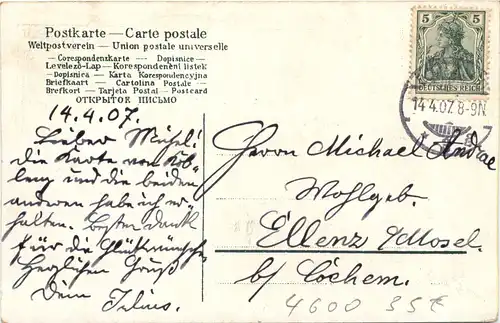 Postkarte — Carte postale
Weltpostverein — Union postale universelle
— Corespondenzkarte — Dopisnice —
Levelező-Lap — Korespondenční lístek
— Dopisnica — Karta Korespondencyjna
Briefkaart — Cartolina Postale —
Brefkort — Tarjeta Postal — Postcard
ОТКРЫТОЕ ПИСЬМО
5 5
DEUTSCHES REICH
14.4.07. 8-9N.
14.4.07.
Lieber Michel!
Die Karte von Kob-
lenz und die beiden
anderen habe ich er-
halten. Besten Dank
für die Glückwünsche
Herzlichen Gruß
Dein
Herrn Michael
Wohlgeb.
Ellenz a/Mosel.
b/ Cochem.
4600 35€